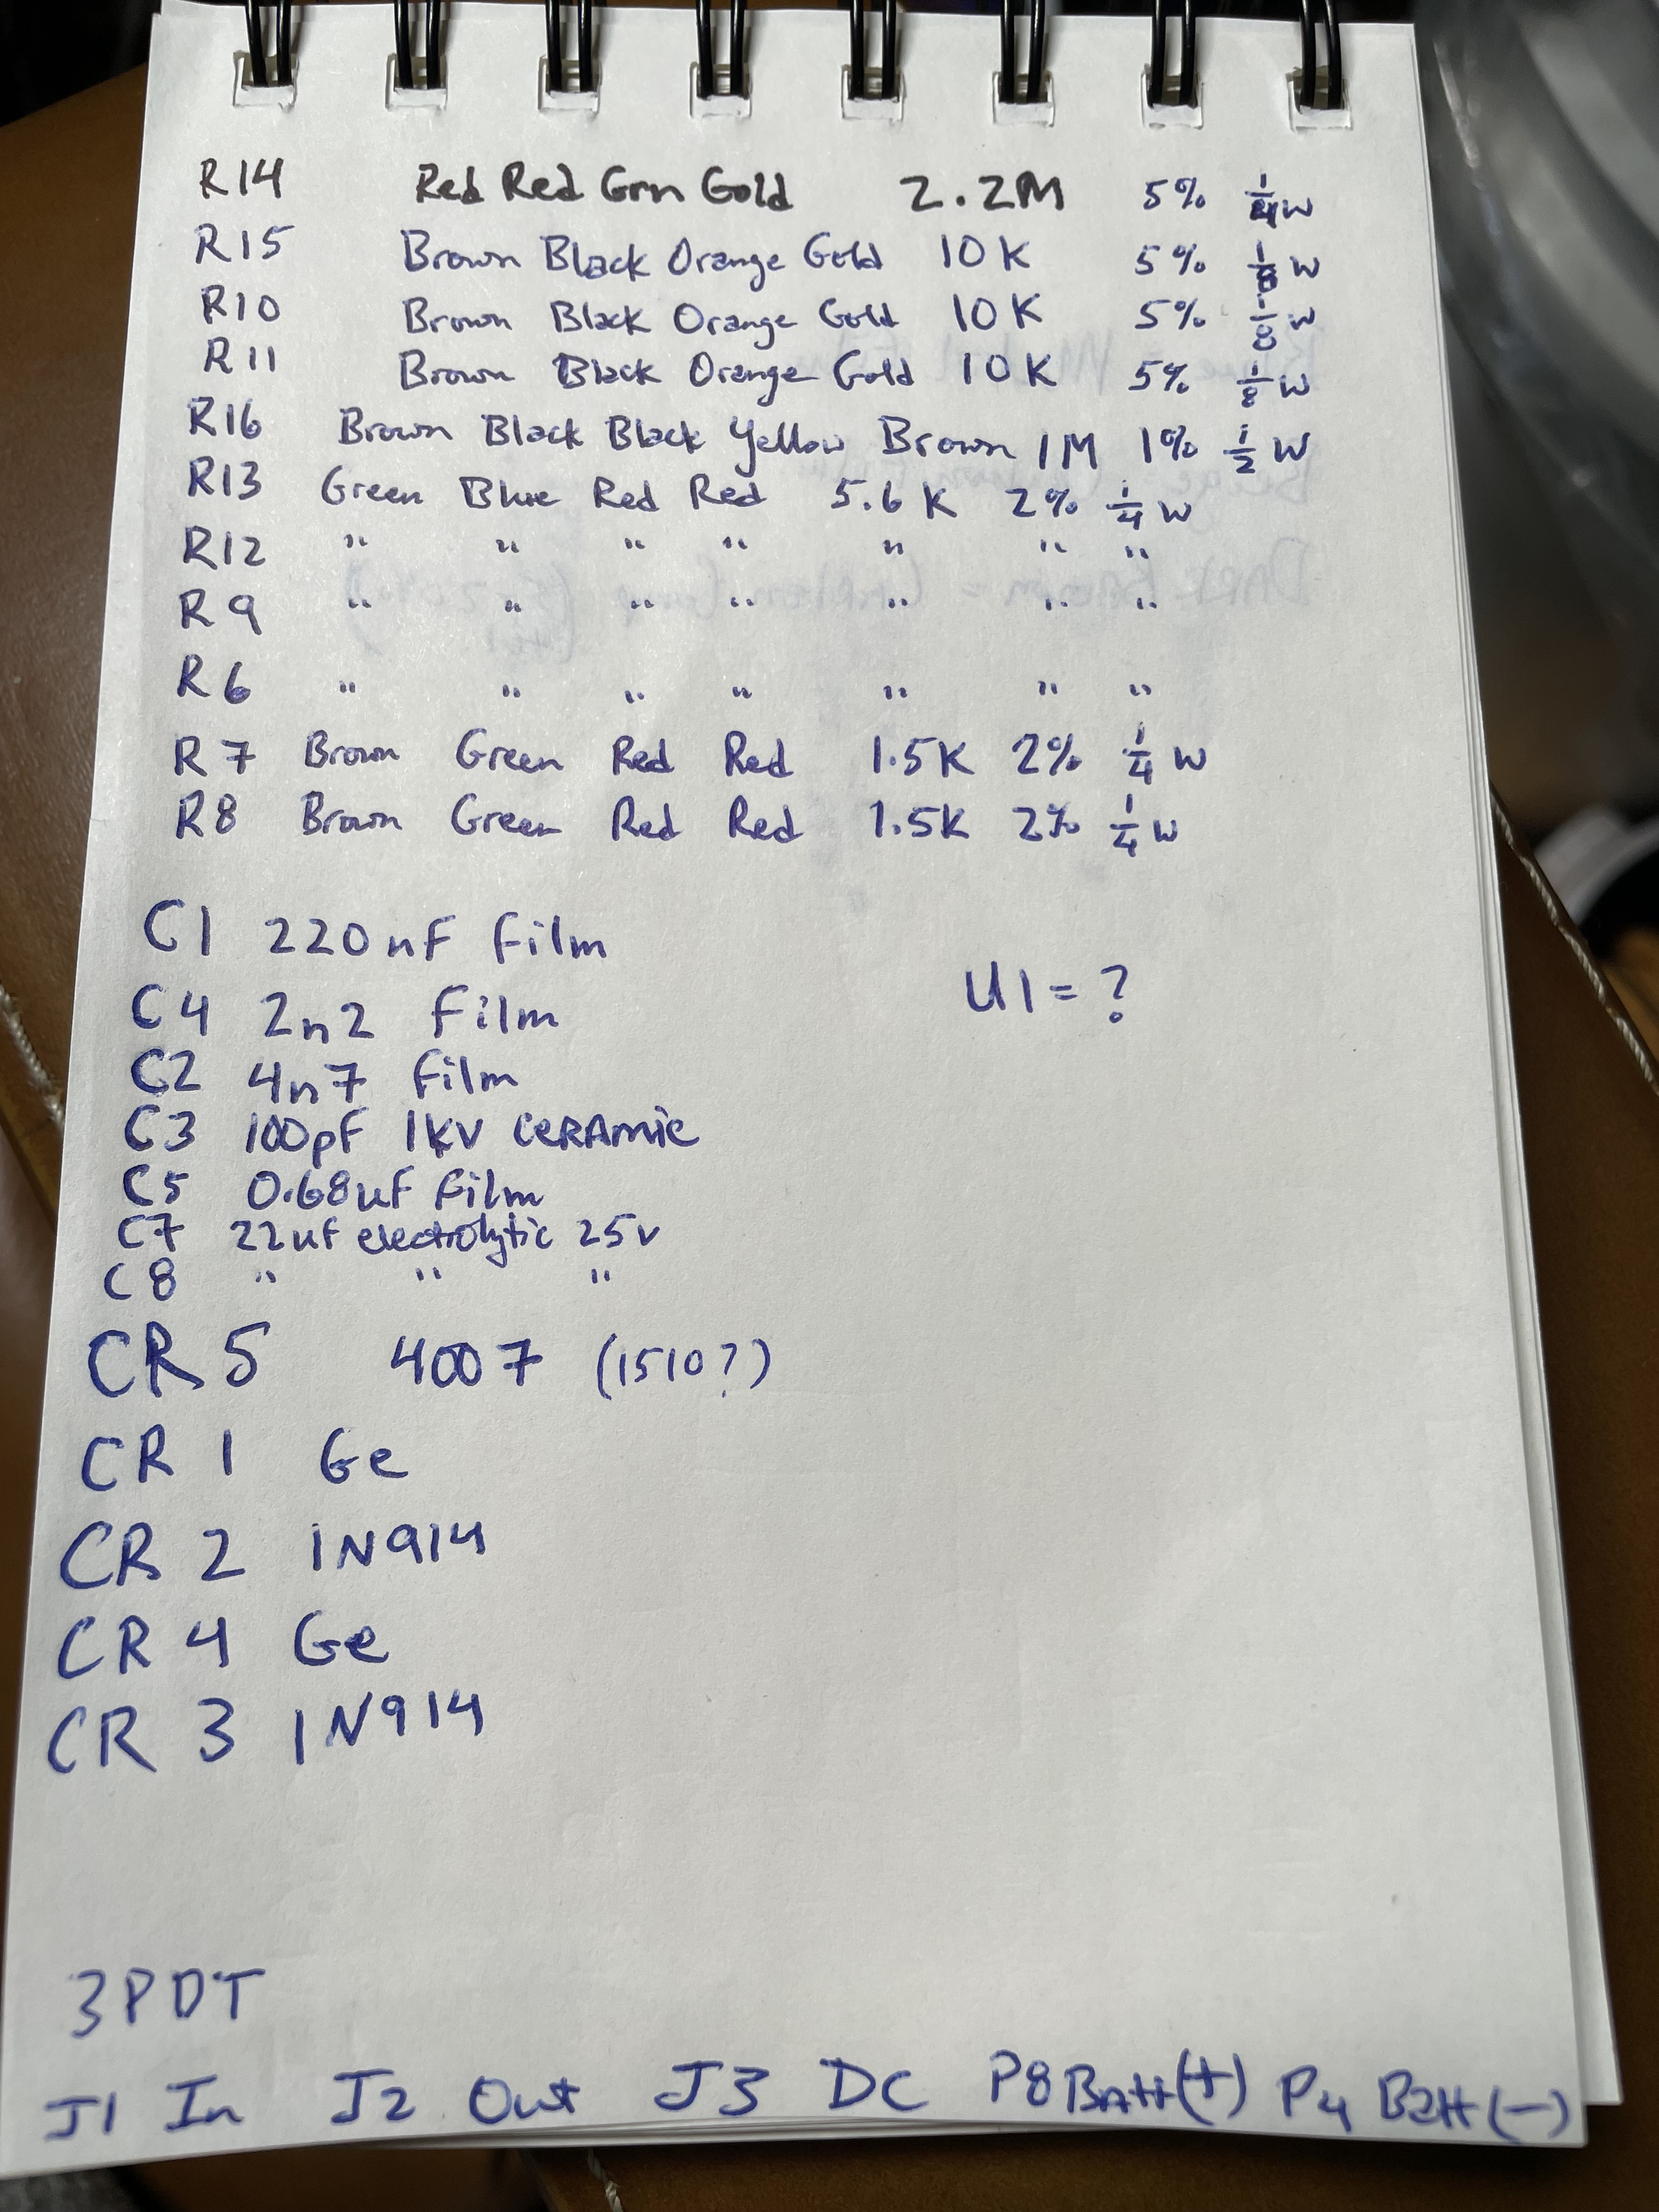 R14 Red Red Grn Gold 2.2M 5% 1/4 W
R15 Brown Black Orange Gold 10K 5% 1/8 W
R10 Brown Black Orange Gold 10K 5% 1/8 W
R11 Brown Black Orange Gold 10K 5% 1/8 W
R16 Brown Black Black Yellow Brown 1M 1% 1/2 W
R13 Green Blue Red Red 5.6K 2% 1/4 W
R12 " " " " " " "
R9 " " " " " " "
R6 " " " " " " "
R7 Brown Green Red Red 1.5K 2% 1/4 W
R8 Brown Green Red Red 1.5K 2% 1/4 W
C1 220nF Film
U1 = ?
C4 2n2 Film
C2 4n7 Film
C3 100pF 1KV CERAMIC
C5 0.68uF Film
C7 22uF electrolytic 25v
C8 " " "
CR5 4007 (1510?)
CR1 Ge
CR2 1N914
CR4 Ge
CR3 1N914
3PDT
J1 In J2 Out J3 DC P8 Batt(+) P4 Batt(-)